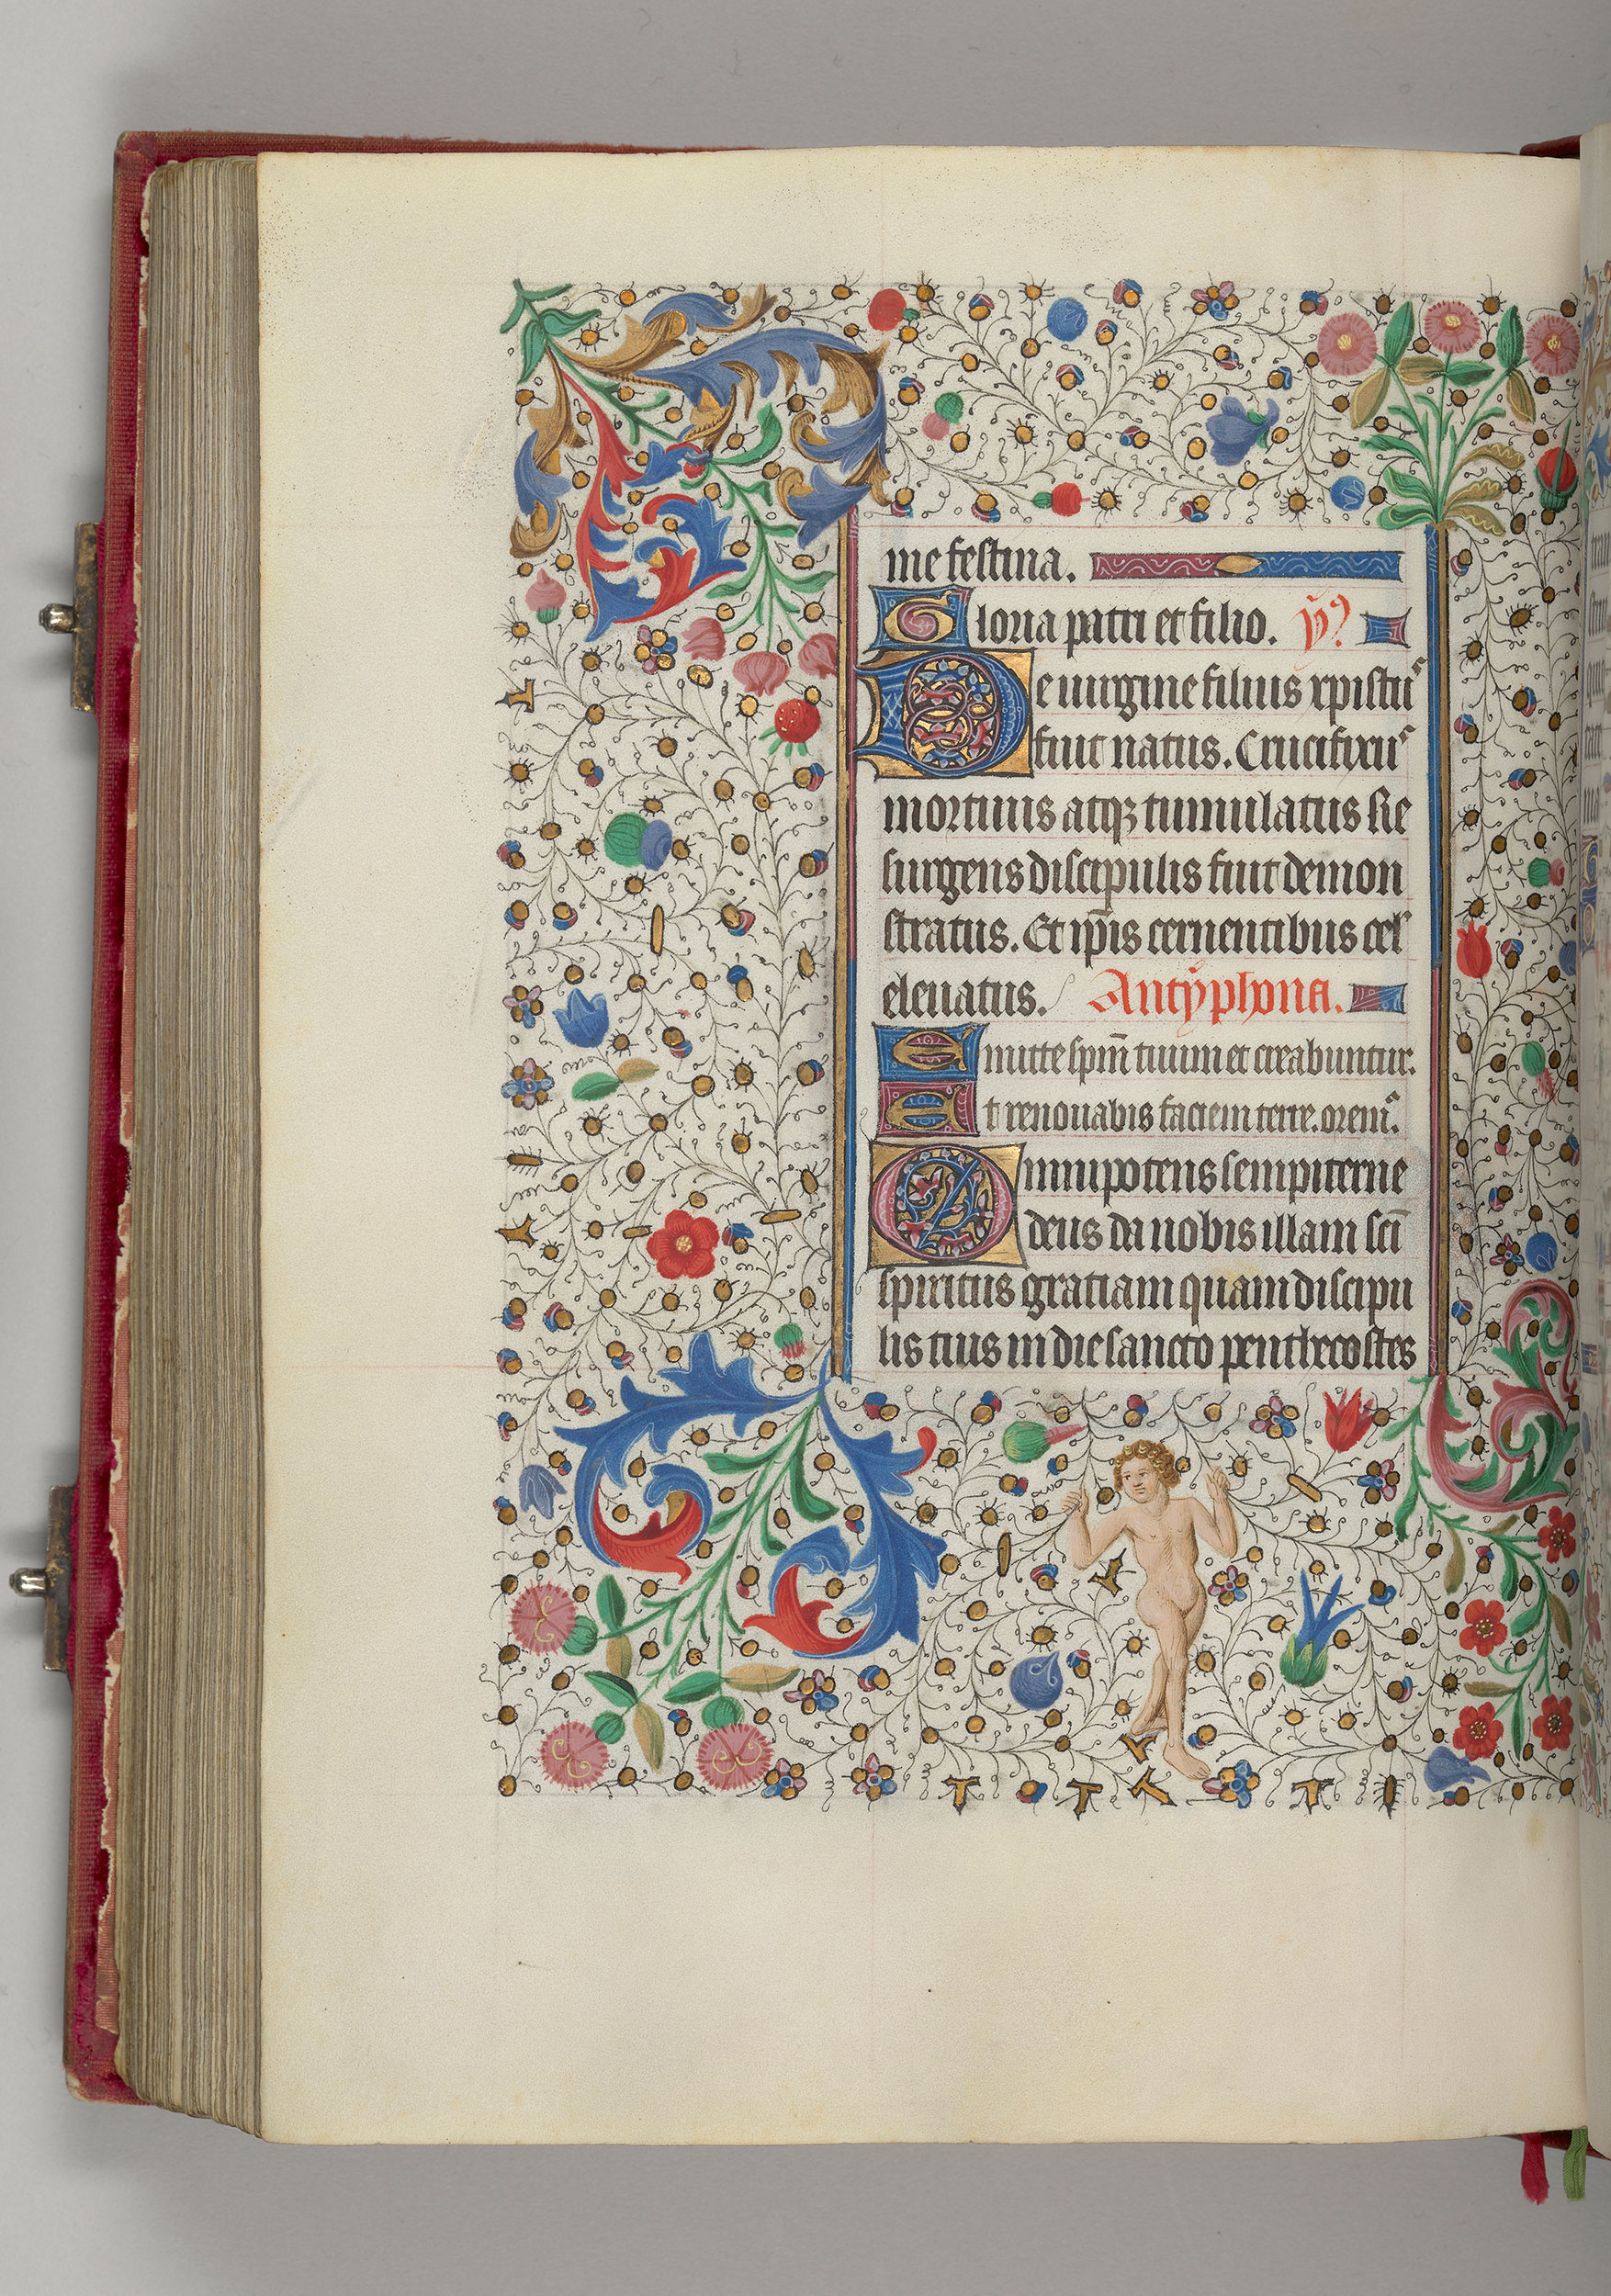 me festina.
Gloria patri et filio. ỹ?
De uirgine filius xpistus
fuit natus. Crucifixus
mortuus atqꝫ tumulatus Re
surgens discipulis fuit demon
stratus. Et ip̄is cernentibus cel᷒
eleuatus. Antÿphona.
Emitte sp̄m tuum et creabuntur.
Et renouabis faciem terre. orem᷒.
Omnipotens sempiterne
deus da nobis illam sc̄i
spiritus gratiam quam discipu
lis tuis in die sancto penthecostes